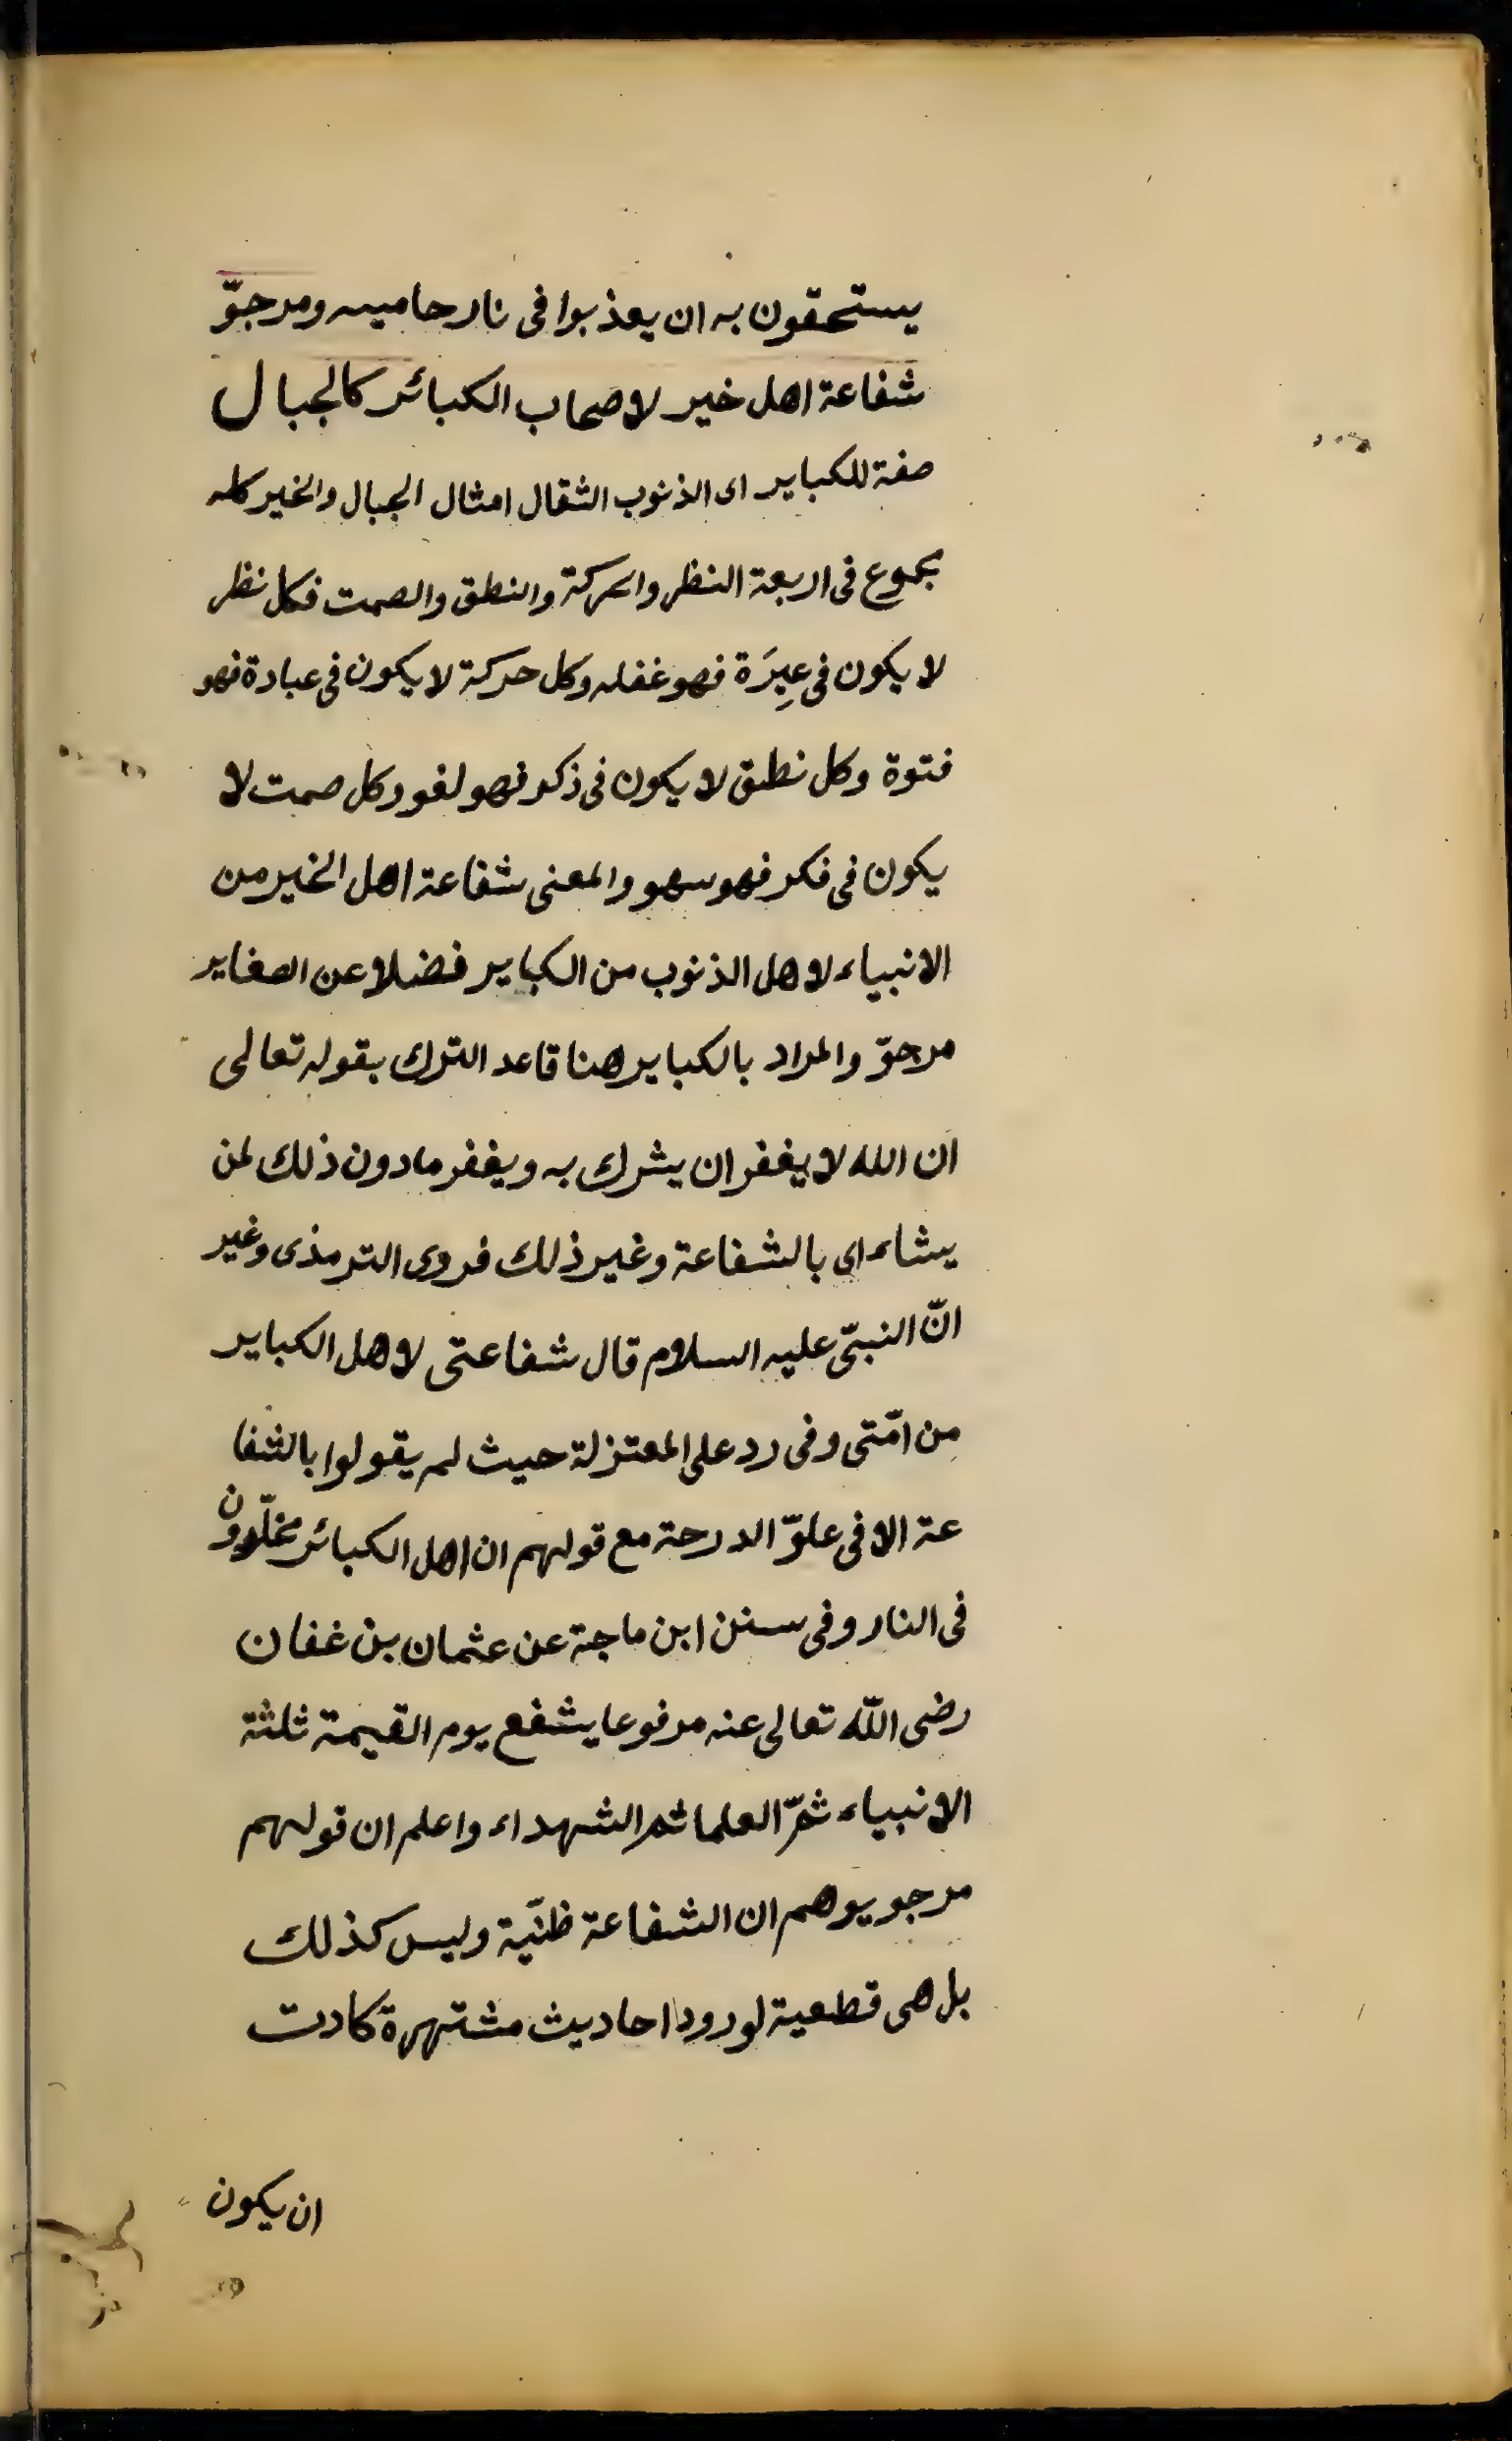 يستحقون به ان يعذبوا فى نار حاميه ومرجوّ
شفاعة اهل خير لاصحاب الكبائر كالجبال
صفة للكباير اى الذنوب الثقال امثال الجبال والخير كله
بجموع فى اربعة النظر والحركة والنطق والصمت فكل نظر
لا يكون فى عِبرَة فهو غفله وكل حركة لا يكون فى عبادة فهو
فتوة وكل نطق لا يكون فى ذكر فهو لغو وكل صمت لا
يكون فى فكر فهو سهو والمعنى شفاعة اهل الخير من
الانبياء لاهل الذنوب من الكباير فضلا عن الصغاير
مرجوّ والمراد بالكباير هنا قاعد الترك بقوله تعالى
ان الله لا يغفر ان يشرك به ويغفر مادون ذلك لمن
يشاء اى بالشفاعة وغير ذلك فروى الترمذى وغير
انّ النبىّ عليه السلام قال شفاعتى لاهل الكباير
من امّتى وفى رد على المعتزلة حيث لم يقولوا بالشفا
عة الا فى علوّ الدرجة مع قولهم ان اهل الكبائر مخلّدون
فى النار وفى سنن ابن ماجة عن عثمان بن غفان
رضى اللّه تعالى عنه مرفوعا يشفع يوم القيمة ثلثة
الانبياء ثمّ العلما ثم الشهداء واعلم ان قولهم
مرجو يوهم ان الشفاعة ظنّية وليس كذلك
بل هى قطعية لورود احاديث مشتهرة كادت
ان يكون